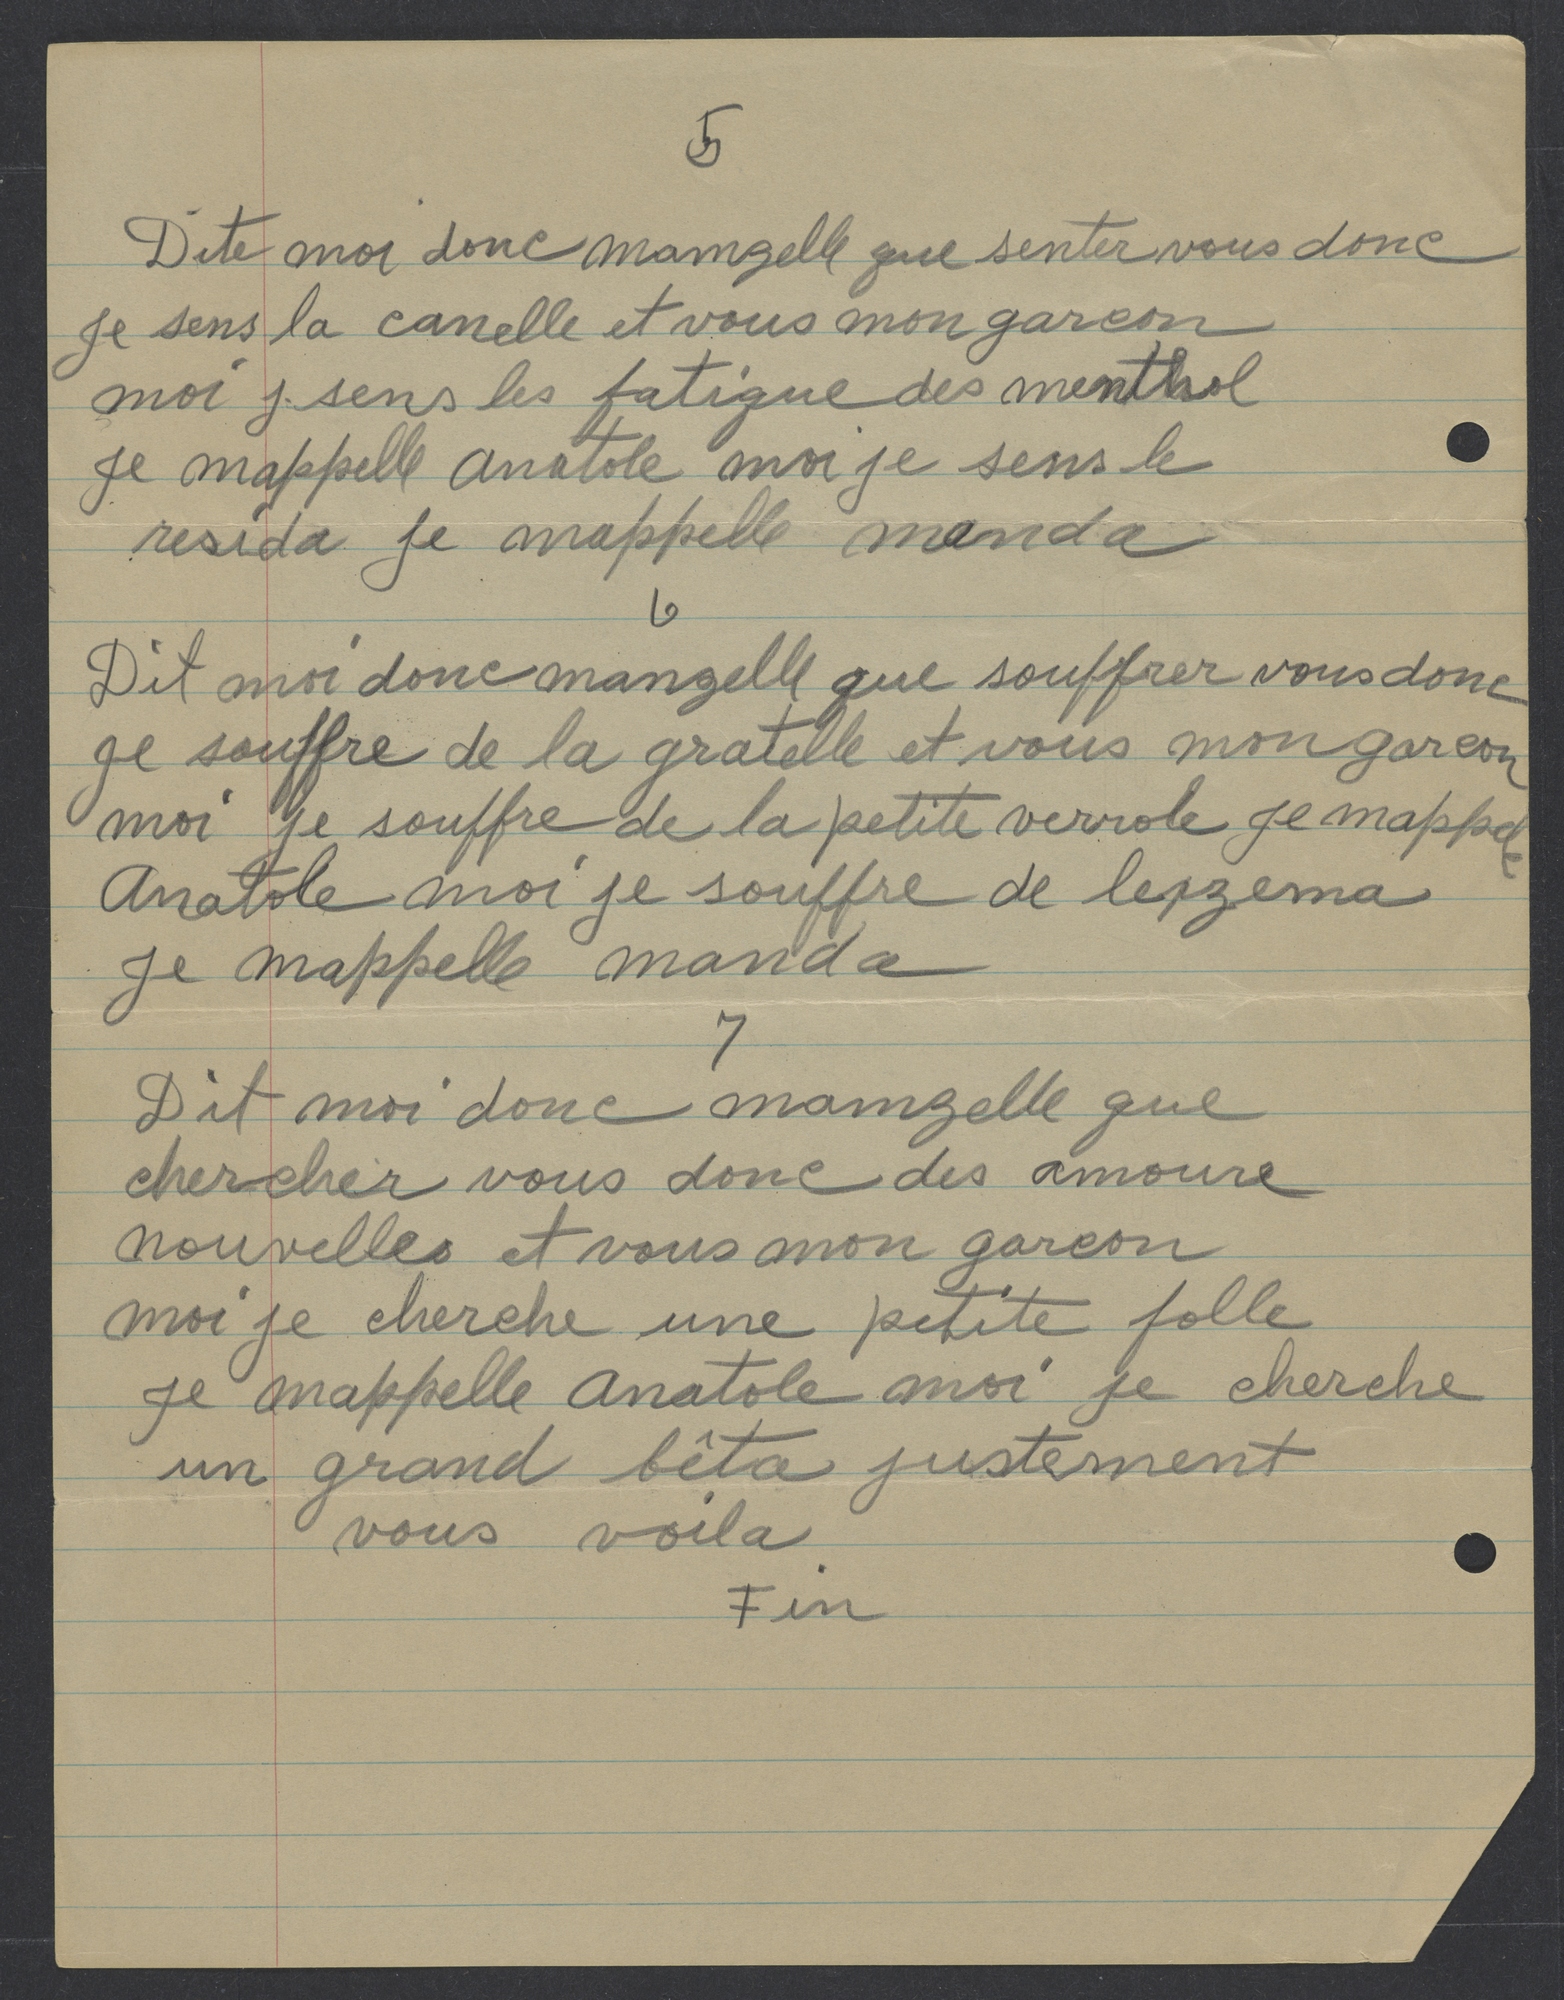 5
Dite moi donc mamzelle que senter vous donc
je sens la canelle et vous mon garcon
moi j sens les fatigue des menthol
je mappelle anatole moi je sens le
resida je mappelle manda
6
Dit moi donc manzelle que souffrer vous donc
je souffre de la gratelle et vous mon garcon
moi je souffre de la petite verrole je mappelle
Anatole moi je souffre de lexzema
je mappelle manda
7
Dit moi donc mamzelle que
chercher vous donc des amoure
nouvelles et vous mon garcon
moi je cherche une petite folle
je mappelle anatole moi je cherche
un grand bêta justement
vous voila
Fin